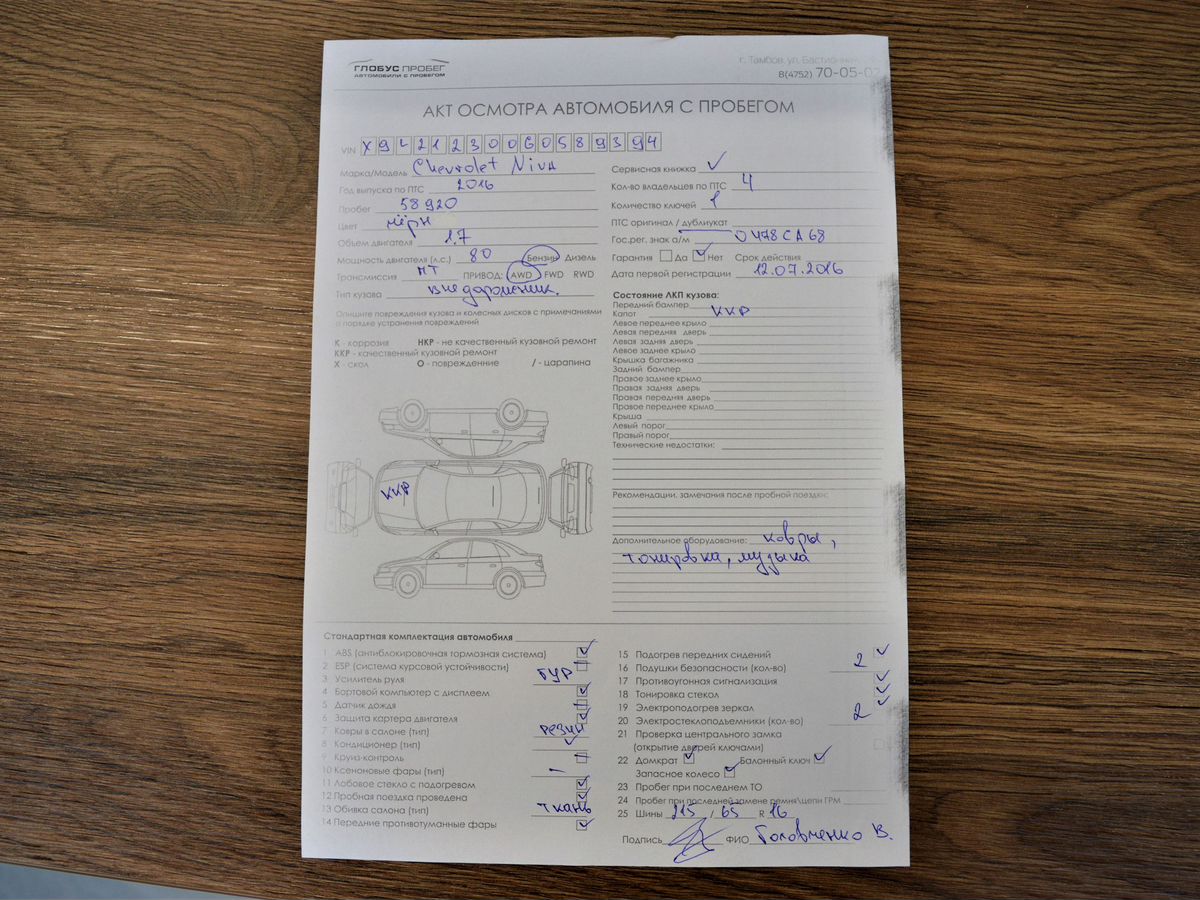 ГЛОБУС ПРОБЕГ
АВТОМОБИЛИ С ПРОБЕГОМ
г. Тамбов, ул. Бастионная
8(4752) 70-05-02
АКТ ОСМОТРА АВТОМОБИЛЯ С ПРОБЕГОМ
VIN X9L212300G0589394
Марка/Модель Chevrolet Niva
Год выпуска по ПТС 2016
Пробег 58920
Цвет чёрн
Объем двигателя 1.7
Мощность двигателя (л.с.) 80 Бензин Дизель
Трансмиссия МТ ПРИВОД: AWD FWD RWD
Тип кузова внедорожник.
Опишите повреждения кузова и колесных дисков с примечаниями
о порядке устранения повреждений
К - коррозия НКР - не качественный кузовной ремонт
ККР - качественный кузовной ремонт
Х - скол О - повреждение / - царапина
ККР
Сервисная книжка ✓
Кол-во владельцев по ПТС 4
Количество ключей 1
ПТС оригинал / дубликат
Гос.рег. знак а/м О478СА68
Гарантия Да ✓ Нет Срок действия
Дата первой регистрации 12.07.2016
Состояние ЛКП кузова:
Передний бампер
Капот ККР
Левое переднее крыло
Левая передняя дверь
Левая задняя дверь
Левое заднее крыло
Крышка багажника
Задний бампер
Правое заднее крыло
Правая задняя дверь
Правая передняя дверь
Правое переднее крыло
Крыша
Левый порог
Правый порог
Технические недостатки:
Рекомендации, замечания после пробной поездки:
Дополнительное оборудование: ковры,
тонировка, музыка
Стандартная комплектация автомобиля
1 ABS (антиблокировочная тормозная система) ✓
2 ESP (система курсовой устойчивости)
3 Усилитель руля ГУР
4 Бортовой компьютер с дисплеем ✓
5 Датчик дождя
6 Защита картера двигателя ✓
7 Ковры в салоне (тип) резин
8 Кондиционер (тип) ✓
9 Круиз-контроль
10 Ксеноновые фары (тип)
11 Лобовое стекло с подогревом ✓
12 Пробная поездка проведена ✓
13 Обивка салона (тип) ткань
14 Передние противотуманные фары ✓
15 Подогрев передних сидений ✓
16 Подушки безопасности (кол-во) 2
17 Противоугонная сигнализация ✓
18 Тонировка стекол ✓
19 Электроподогрев зеркал ✓
20 Электростеклоподъемники (кол-во) 2
21 Проверка центрального замка
(открытие дверей ключами)
22 Домкрат ✓ Балонный ключ ✓
Запасное колесо ✓
23 Пробег при последнем ТО
24 Пробег при последней замене ремня\цепи ГРМ
25 Шины 215 / 65 R 16
Подпись ФИО Головченко В.